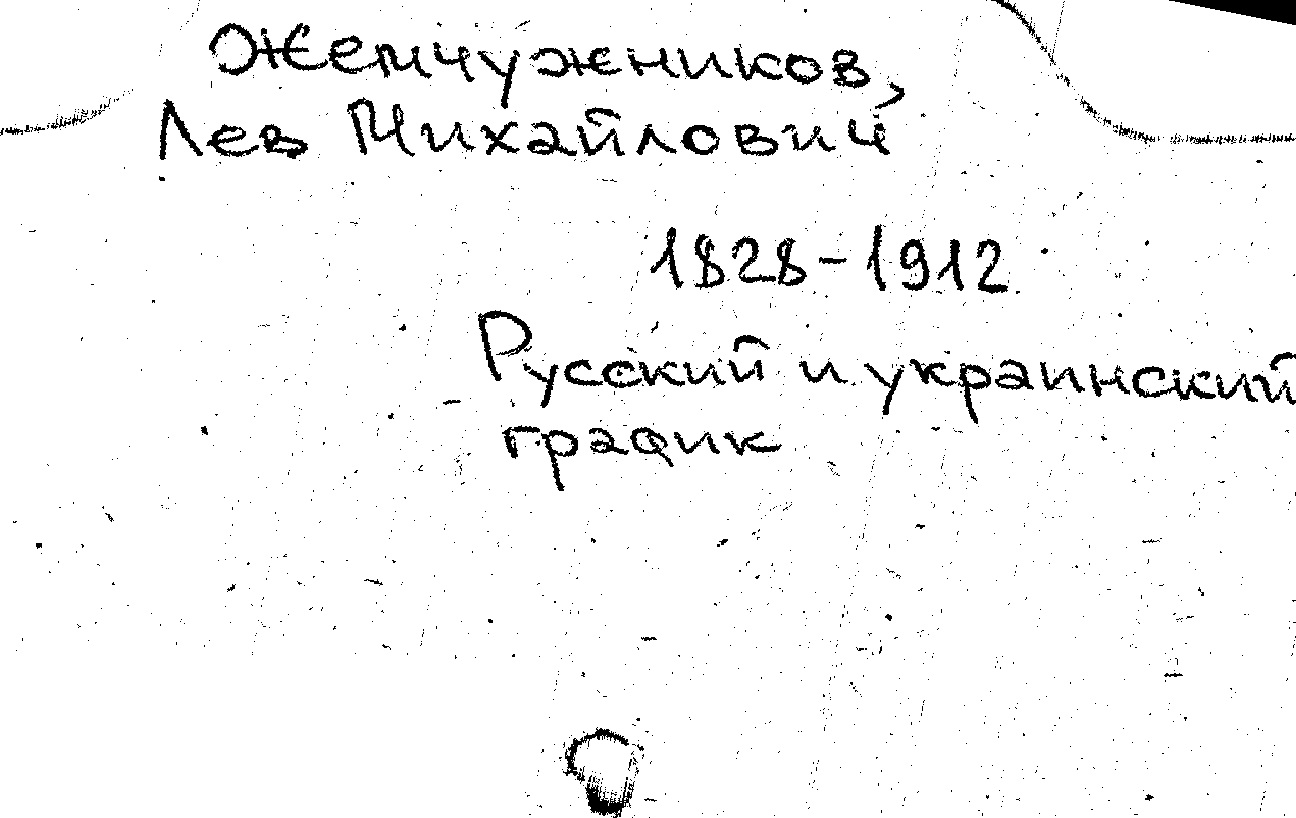 Жемчужников,
Лев Михайлович
1828-1912
Русский и украинский
график